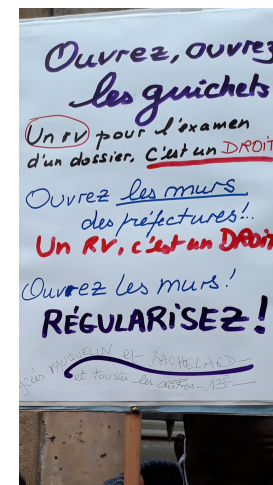 Ouvrez, ouvrez
les guichets
Un rv pour l'examen
d'un dossier, C'est un DROIT
Ouvrez les murs
des préfectures!..
Un RV, c'est un DROIT
Ouvrez les murs!
RÉGULARISEZ!
VAUQUELIN et BACHELARD
et tous·tes les autres - 13e